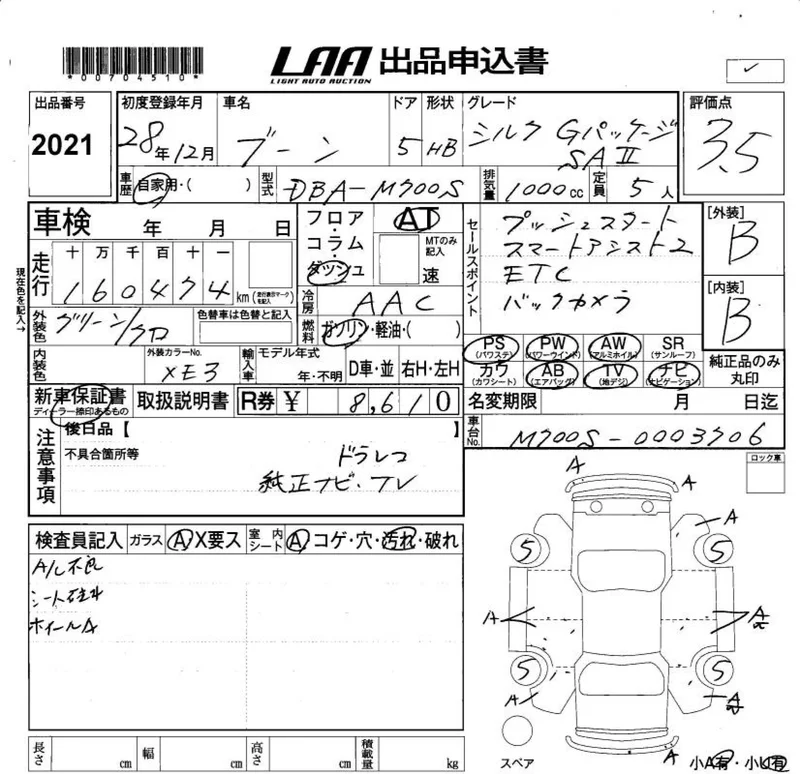 *00704510*
LAA 出品申込書
LIGHT AUTO AUCTION
出品番号
2021
初度登録年月
28年12月
車名
ブーン
ドア
5
形状
HB
グレード
シルク Gパッケージ
SAⅡ
評価点
3.5
車歴
自家用・( )
型式
DBA-M700S
排気量
1000cc
定員
5人
車検 年 月 日
フロア
コラム
ダッシュ
AT
MTのみ記入
速
セールスポイント
プッシュスタート
スマートアシスト2
ETC
バックカメラ
[外装]
B
[内装]
B
現在色を記入→
走行
十 万 千 百 十 一
160474
km (走行表示マークを記入)
冷房
AAC
燃料
ガソリン・軽油・( )
外装色
グリーン/クロ
色替車は色替と記入
PS (パワステ)
PW (パワーウインド)
AW (アルミホイル)
SR (サンルーフ)
カワ (カワシート)
AB (エアバッグ)
TV (地デジ)
ナビ (ナビゲーション)
純正品のみ
丸印
内装色
外装カラーNo.
XE3
輸入車
モデル年式
年・不明
D車・並
右H・左H
新車保証書
ディーラー捺印あるもの
取扱説明書
R券 ¥ 8,610
名変期限 月 日迄
車台No.
M700S-0003706
注意事項
後日品【 】
不具合箇所等
ドラレコ
純正ナビ・TV
ロック車
検査員記入
ガラス
A X要ス
室内シート
A コゲ・穴・汚れ・破れ
A/L不良
シート
ホイールA
A
A
A
5
5
A
A
5
5
A
A
A
スペア
小A有・小U有
長さ cm
幅 cm
高さ cm
積載量 kg